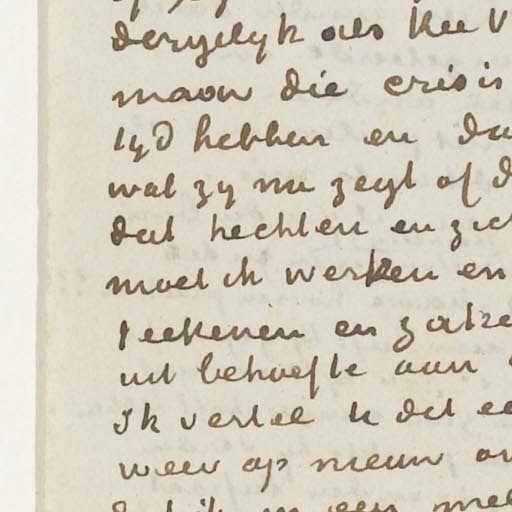 dergelyk als Kee V
maar die crisis
tyd hebben en da
wat zy nu zegt of d
dat hechten en zich
moet ik werken en
teekenen en zaken
uit behoefte aan
Ik vertel U dit ee
weer op nieuw on